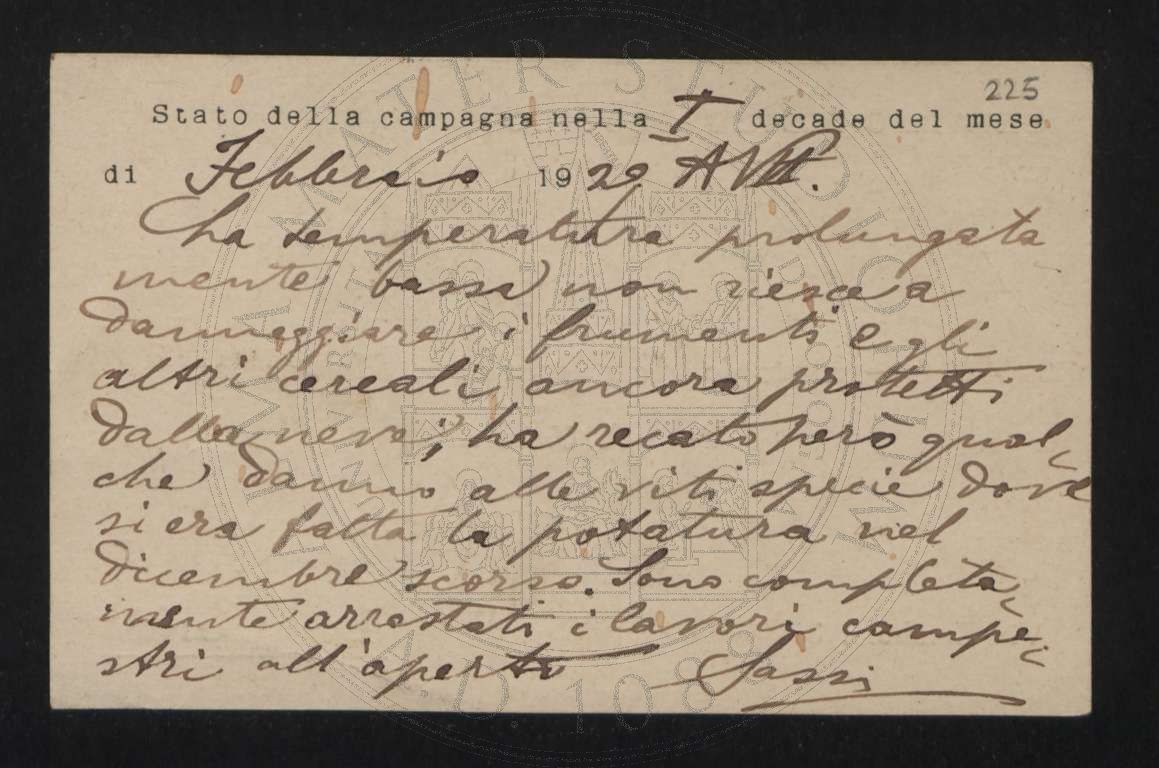 225
Stato della campagna nella I decade del mese
di Febbraio 1929 A VII.
La temperatura prolungata
mente bassa non riesce a
danneggiare i frumenti e gli
altri cereali ancora protetti
dalla neve; ha recato però qual-
che danno alle viti specie dove
si era fatta la potatura nel
dicembre scorso. Sono completa-
mente arrestati i lavori campe-
stri all'aperto Sassi
ALMA MATER STUDIORUM
A.D. 1088